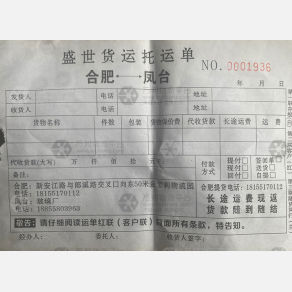 盛世货运托运单
合肥——凤台 NO.0001936
年 月 日
发货人 电话 地址
收货人 电话 地址
货物名称 件数 包装 货物保价费 代收货款 长途运费 送费
代收货款(大写) 万 仟 佰 拾 元
付款方式 提付□ 签单□ 现付□ 送货□ 回付□ 自提□
备注:
合肥:新安江路与郎溪路交叉口向东50米 物流园
电话:18155170112
凤台:玻璃厂
电话:18855803963
合肥提货电话:18155170112
长途运费现返
货款随到随结
敬告:请仔细阅读运单红联(客户联)背面所有条款,特告知。
经办人: 委托人: 收货人签字: